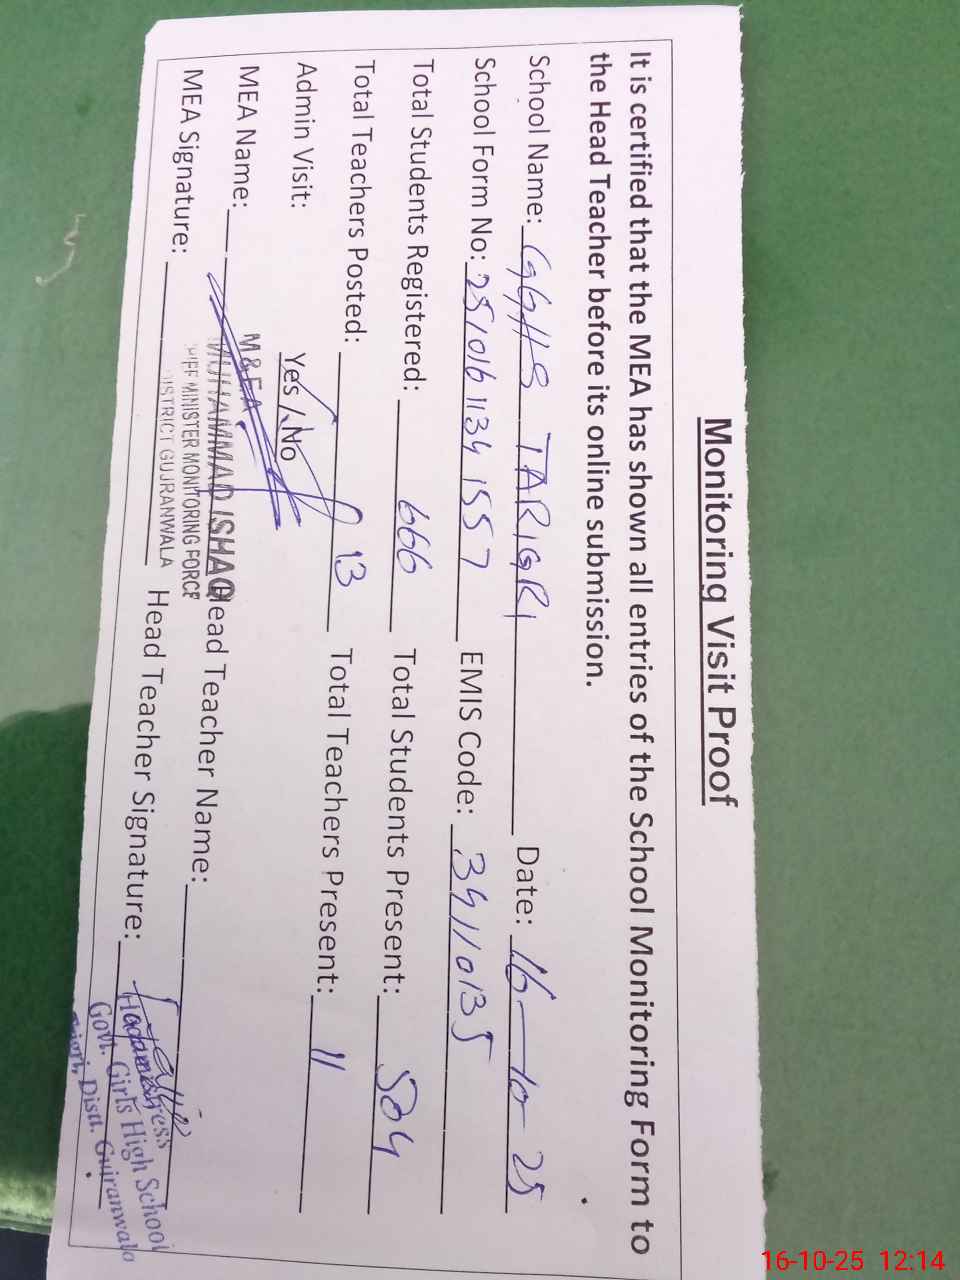 Monitoring Visit Proof
It is certified that the MEA has shown all entries of the School Monitoring Form to
the Head Teacher before its online submission.
School Name: GGHS TARIGRI Date: 16-10-25
School Form No: 251016 1134 1557 EMIS Code: 34110135
Total Students Registered: 666 Total Students Present: 504
Total Teachers Posted: 13 Total Teachers Present: 11
Admin Visit: Yes / No
MEA Name: Head Teacher Name:
MEA Signature: Head Teacher Signature:
M & EA
MUHAMMAD ISHAQ
CHIEF MINISTER MONITORING FORCE
DISTRICT GUJRANWALA
Headmistress
Govt. Girls High School
Distt. Gujranwala
16-10-25 12:14